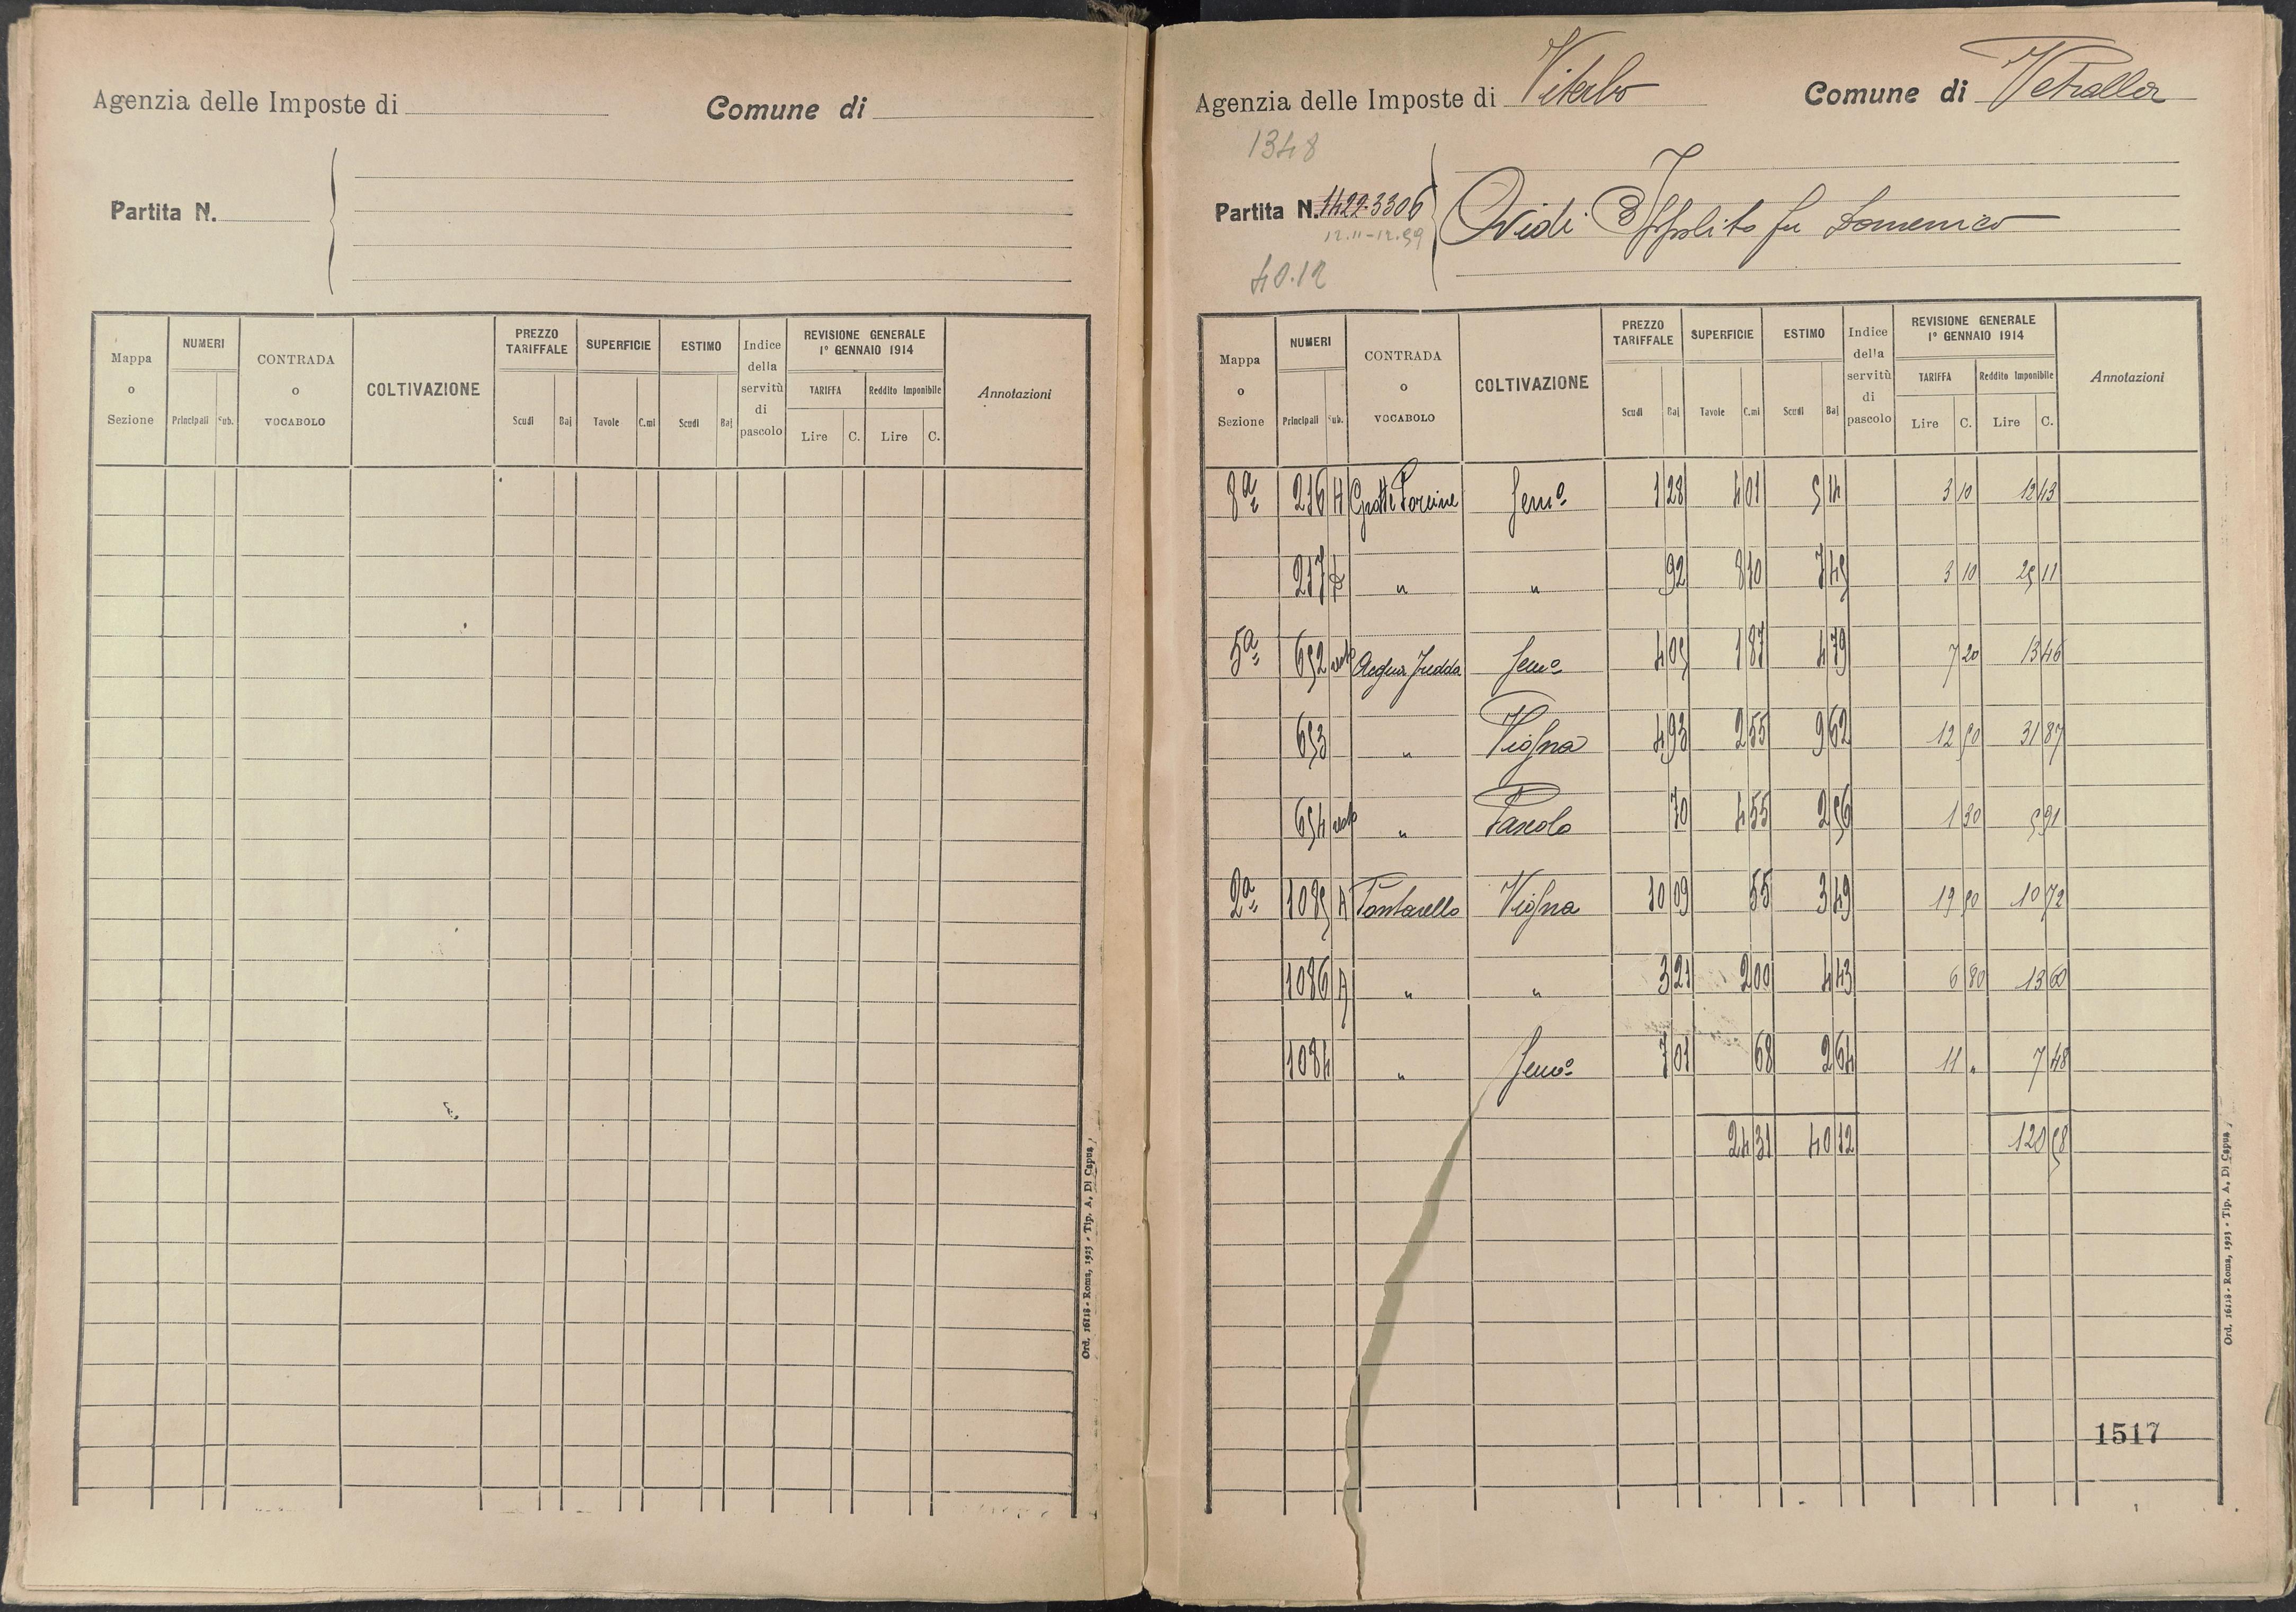 Agenzia delle Imposte di
Comune di
Partita N.
Mappa o Sezione
NUMERI
Principali Sub.
CONTRADA o VOCABOLO
COLTIVAZIONE
PREZZO TARIFFALE
Scudi Baj
SUPERFICIE
Tavole C.mi
ESTIMO
Scudi Baj
Indice della servitù di pascolo
REVISIONE GENERALE
1° GENNAIO 1914
TARIFFA Reddito Imponibile
Lire C. Lire C.
Annotazioni
Ord. 16118 - Roma, 1923 - Tip. A. Di Capua
Agenzia delle Imposte di Viterbo
Comune di Vetralla
1348
Partita N. 1422-3306
12.11-12.39
40.12
Ovidi Ippolito fu Domenico
Mappa o Sezione
NUMERI
Principali Sub.
CONTRADA o VOCABOLO
COLTIVAZIONE
PREZZO TARIFFALE
Scudi Baj
SUPERFICIE
Tavole C.mi
ESTIMO
Scudi Baj
Indice della servitù di pascolo
REVISIONE GENERALE
1° GENNAIO 1914
TARIFFA Reddito Imponibile
Lire C. Lire C.
Annotazioni
8a 216 H Grotte Porcine Semo 1 28 4 01 5 14 3 10 12 43
217 " " 92 8 10 7 45 3 10 25 11
5a 652 resto Acqua Fredda Semo 4 05 1 87 4 79 7 20 13 46
653 " Vigna 4 93 2 55 9 62 12 50 31 87
654 resto " Pascolo 70 4 55 2 56 1 30 5 91
2a 1085 A Pantanello Vigna 10 09 55 3 49 19 50 10 72
1086 A " " 3 21 2 00 4 43 6 80 13 60
1084 " Semo 7 01 68 2 64 11 " 7 48
24 31 40 12 120 58
1517
Ord. 16118 - Roma, 1923 - Tip. A. Di Capua